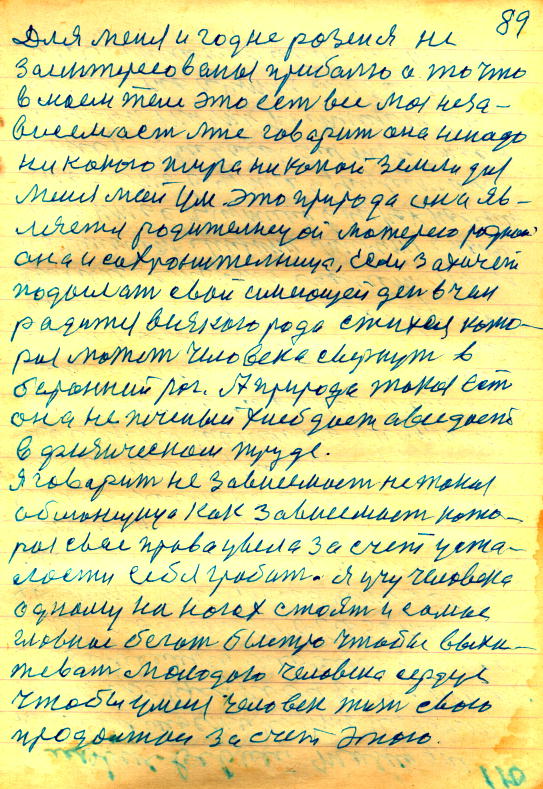 89
Для меня и годне розеня не
заинтересованыя прибалю а то что
в моем теле это ест все моя неза-
висемаст мне говарит она ненадо
ни какого тира никакой земли для
меня мой ум это природа она яв-
ляетея родителницой матерею родной
она и сохронителница, если захичет
подыхат свой сияющей
радител всякого рода стихея кото-
рая может человека свернут в
баранний рог. А природа такая ест
она не печеный хлеб дает а все дает
в физическом труде.
Я говарит не зависемаст не такая
обманщица как зависемаст кото-
рая свае права увела за счет уста-
лости себя гробит. Я учу человека
одному на ногах стоят и самае
главнае бегат быстро чтобы выхи-
меват молодого человека сердце
чтобы умел человек жизн свою
продолжат за счет этого.
110